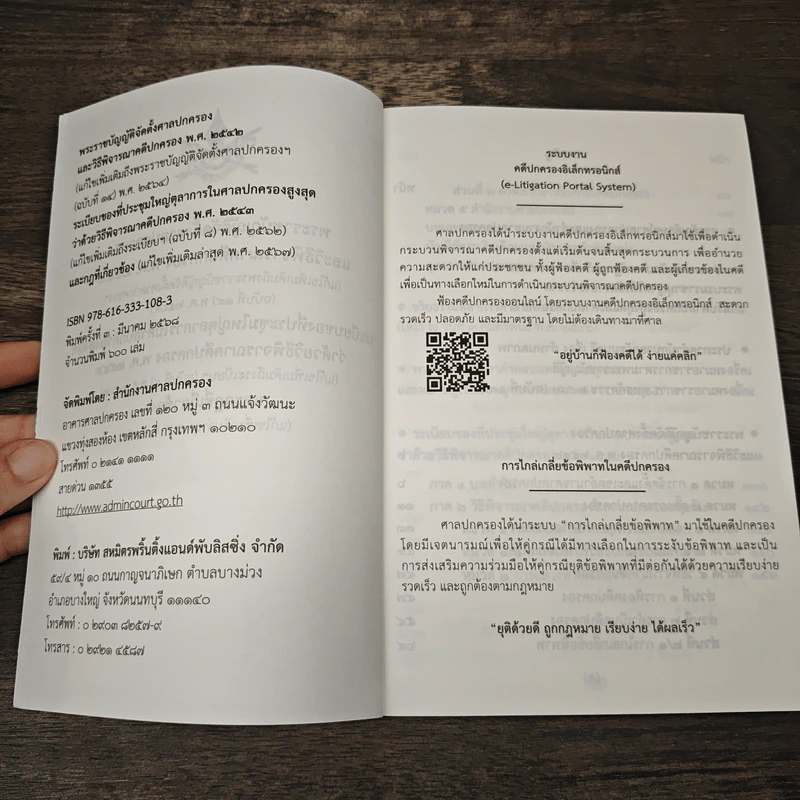 พระราชบัญญัติจัดตั้งศาลปกครอง
และวิธีพิจารณาคดีปกครอง พ.ศ. ๒๕๔๒
(แก้ไขเพิ่มเติมถึงพระราชบัญญัติจัดตั้งศาลปกครองฯ
(ฉบับที่ ๑๔) พ.ศ. ๒๕๖๔)
ระเบียบของที่ประชุมใหญ่ตุลาการในศาลปกครองสูงสุด
ว่าด้วยวิธีพิจารณาคดีปกครอง พ.ศ. ๒๕๔๓
(แก้ไขเพิ่มเติมถึงระเบียบฯ (ฉบับที่ ๘) พ.ศ. ๒๕๖๒)
และกฎที่เกี่ยวข้อง (แก้ไขเพิ่มเติมล่าสุด พ.ศ. ๒๕๖๗)
ISBN 978-616-333-108-3
พิมพ์ครั้งที่ ๓ : มีนาคม ๒๕๖๘
จำนวนพิมพ์ ๖๐๐ เล่ม
จัดพิมพ์โดย : สำนักงานศาลปกครอง
อาคารศาลปกครอง เลขที่ ๑๒๐ หมู่ ๓ ถนนแจ้งวัฒนะ
แขวงทุ่งสองห้อง เขตหลักสี่ กรุงเทพฯ ๑๐๒๑๐
โทรศัพท์ ๐ ๒๑๔๑ ๑๑๑๑
สายด่วน ๑๓๕๕
http://www.admincourt.go.th
พิมพ์ : บริษัท สหมิตรพริ้นติ้งแอนด์พับลิสซิ่ง จำกัด
๕๙/๔ หมู่ ๑๐ ถนนกาญจนาภิเษก ตำบลบางม่วง
อำเภอบางใหญ่ จังหวัดนนทบุรี ๑๑๑๔๐
โทรศัพท์ : ๐ ๒๙๐๓ ๘๒๕๗-๙
โทรสาร : ๐ ๒๙๒๑ ๔๕๘๗
ระบบงาน
คดีปกครองอิเล็กทรอนิกส์
(e-Litigation Portal System)
ศาลปกครองได้นำระบบงานคดีปกครองอิเล็กทรอนิกส์มาใช้เพื่อดำเนิน
กระบวนพิจารณาคดีปกครองตั้งแต่เริ่มต้นจนสิ้นสุดกระบวนการ เพื่ออำนวย
ความสะดวกให้แก่ประชาชน ทั้งผู้ฟ้องคดี ผู้ถูกฟ้องคดี และผู้เกี่ยวข้องในคดี
เพื่อเป็นทางเลือกใหม่ในการดำเนินกระบวนพิจารณาคดีปกครอง
ฟ้องคดีปกครองออนไลน์ โดยระบบงานคดีปกครองอิเล็กทรอนิกส์ สะดวก
รวดเร็ว ปลอดภัย และมีมาตรฐาน โดยไม่ต้องเดินทางมาที่ศาล
"อยู่บ้านก็ฟ้องคดีได้ ง่ายแค่คลิก"
การไกล่เกลี่ยข้อพิพาทในคดีปกครอง
ศาลปกครองได้นำระบบ "การไกล่เกลี่ยข้อพิพาท" มาใช้ในคดีปกครอง
โดยมีเจตนารมณ์เพื่อให้คู่กรณีได้มีทางเลือกในการระงับข้อพิพาท และเป็น
การส่งเสริมความร่วมมือให้คู่กรณียุติข้อพิพาทที่มีต่อกันได้ด้วยความเรียบง่าย
รวดเร็ว และถูกต้องตามกฎหมาย
"ยุติด้วยดี ถูกกฎหมาย เรียบง่าย ได้ผลเร็ว"